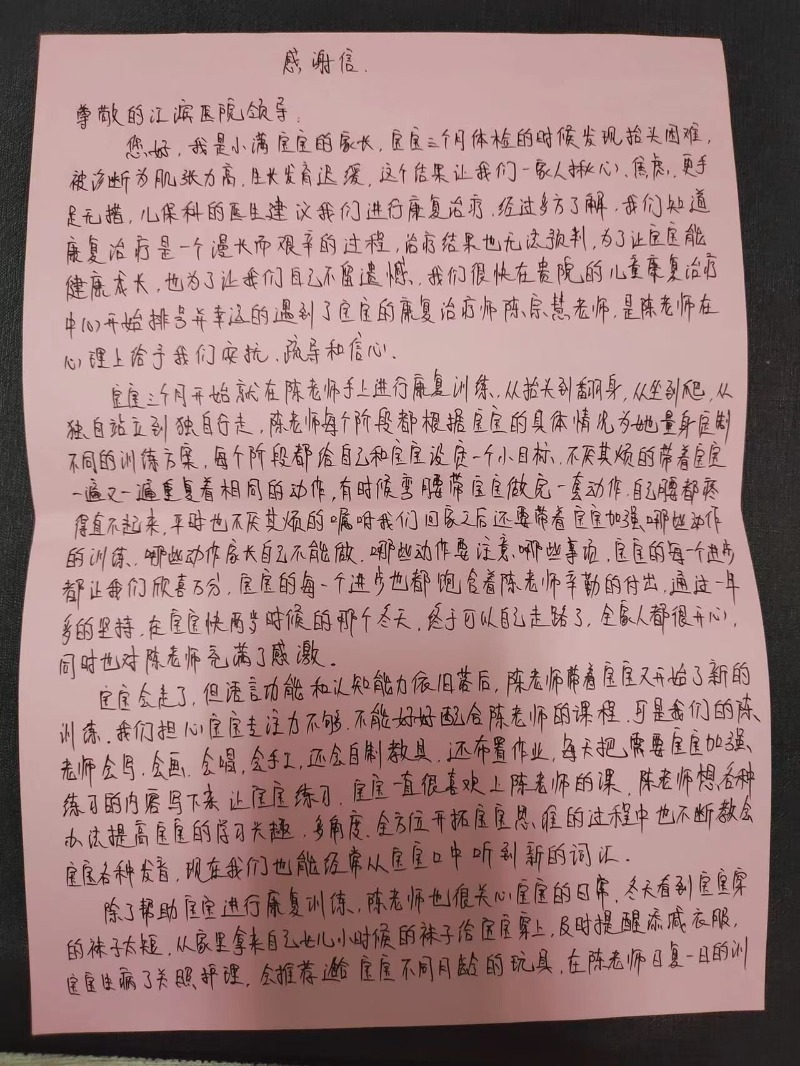 感谢信.
尊敬的江滨医院领导:
您好,我是小满宝宝的家长,宝宝三个月体检的时候发现抬头困难,
被诊断为肌张力高,生长发育迟缓,这个结果让我们一家人揪心、焦虑,更手
足无措,儿保科的医生建议我们进行康复治疗,经过多方了解,我们知道
康复治疗是一个漫长而艰辛的过程,治疗结果也无法预判,为了让宝宝能
健康成长,也为了让我们自己不留遗憾,我们很快在贵院的儿童康复治疗
中心开始排号并幸运的遇到了宝宝的康复治疗师陈宗慧老师,是陈老师在
心理上给予我们安抚、疏导和信心.
宝宝三个月开始就在陈老师手上进行康复训练,从抬头到翻身,从坐到爬,从
独自站立到独自行走,陈老师每个阶段都根据宝宝的具体情况为她量身定制
不同的训练方案,每个阶段都给自己和宝宝设定一个小目标,不厌其烦的带着宝宝
一遍又一遍重复着相同的动作,有时候弯腰带宝宝做完一套动作,自己腰都疼
得直不起来,平时也不厌其烦的嘱咐我们回家之后还要带着宝宝加强哪些动作
的训练,哪些动作家长自己不能做,哪些动作要注意哪些事项,宝宝的每一个进步
都让我们欣喜万分,宝宝的每一个进步也都饱含着陈老师辛勤的付出,通过一年
多的坚持,在宝宝快两岁时候的那个冬天,终于可以自己走路了,全家人都很开心,
同时也对陈老师充满了感激.
宝宝会走了,但语言功能和认知能力依旧落后,陈老师带着宝宝又开始了新的
训练,我们担心宝宝专注力不够,不能好好配合陈老师的课程,可是我们的陈
老师会写,会画,会唱,会手工,还会自制教具,还布置作业,每天把需要宝宝加强
练习的内容写下来让宝宝练习,宝宝一直很喜欢上陈老师的课,陈老师想各种
办法提高宝宝的学习兴趣,多角度、全方位开拓宝宝思维的过程中也不断教会
宝宝各种发音,现在我们也能经常从宝宝口中听到新的词汇.
除了帮助宝宝进行康复训练,陈老师也很关心宝宝的日常,冬天看到宝宝穿
的袜子太短,从家里拿来自己女儿小时候的袜子给宝宝穿上,及时提醒添减衣服,
宝宝生病了关照护理,会推荐适合宝宝不同月龄的玩具,在陈老师日复一日的训